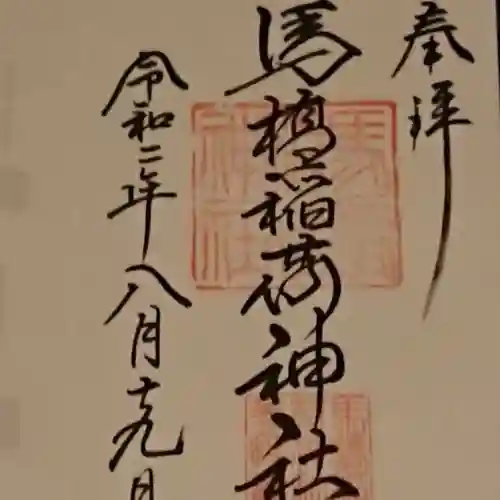 奉拝
馬橋稲荷神社
令和二年八月十九日